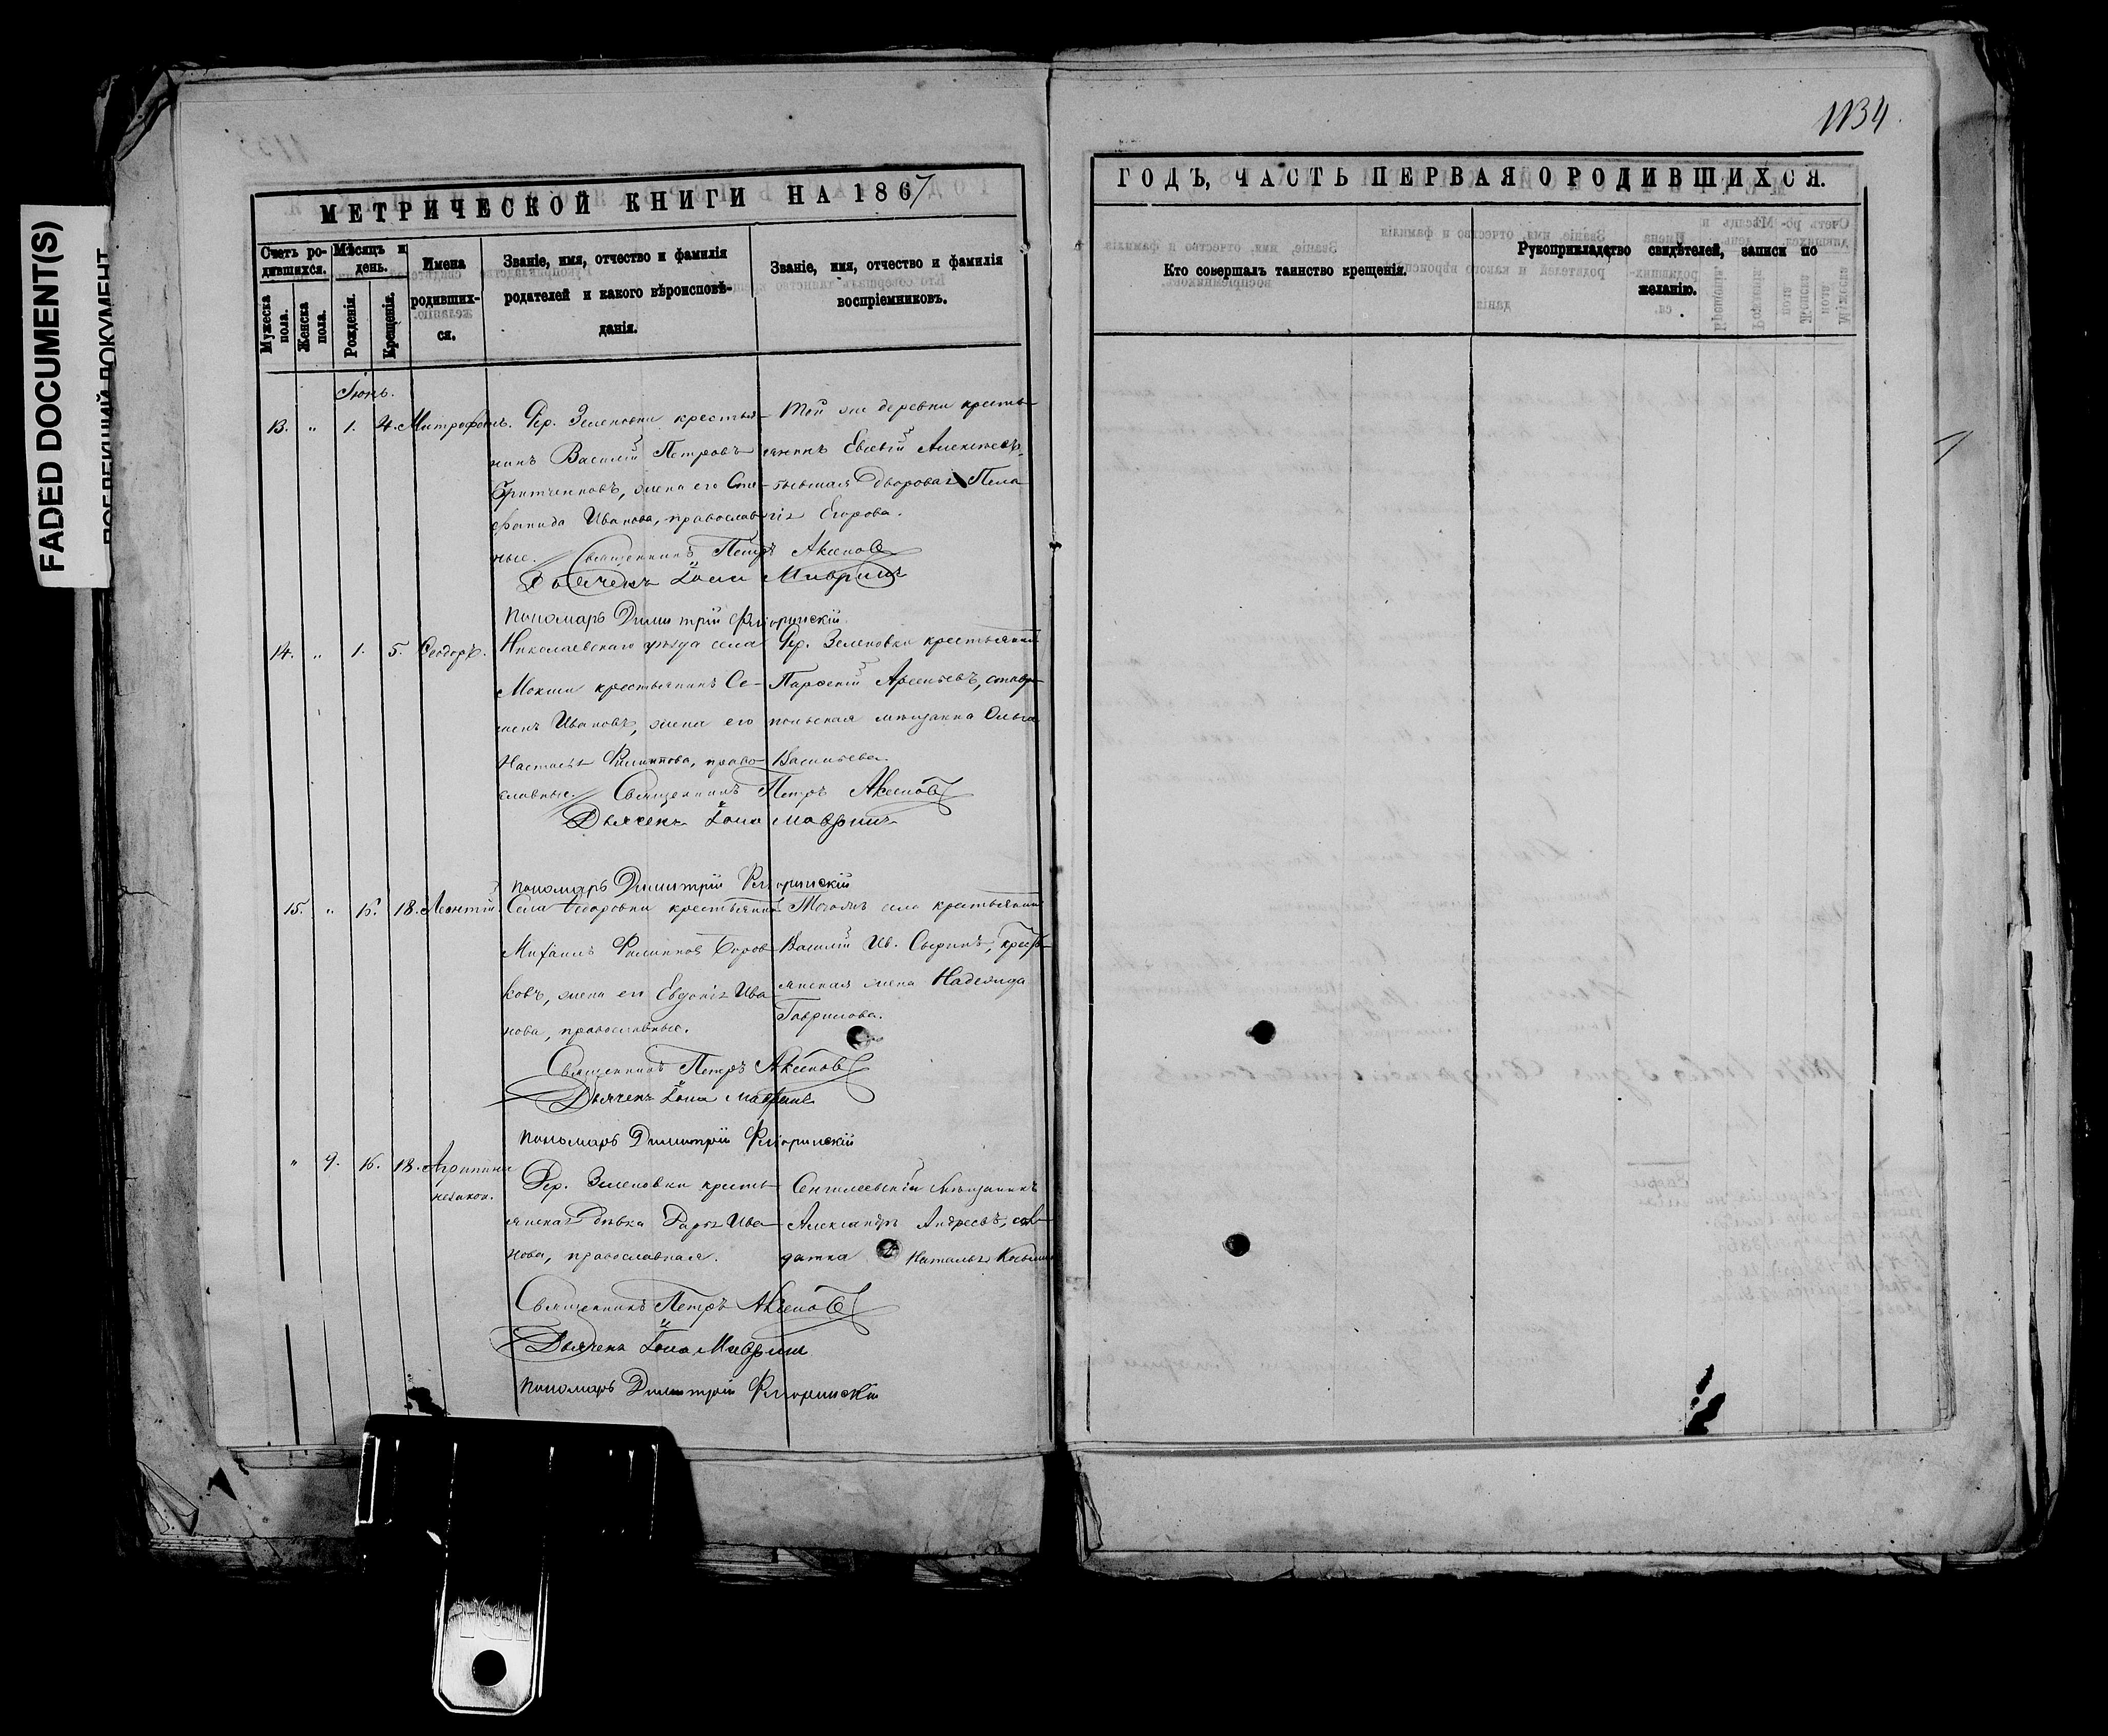 1134
FADED DOCUMENT(S)
МЕТРИЧЕСКОЙ КНИГИ НА 1867
ГОДЪ, ЧАСТЬ ПЕРВАЯ О РОДИВШИХСЯ.
Счетъ ро-
дившихся.
Мужеска пола.
Женска пола.
Мѣсяцъ и
день.
Рожденія.
Крещенія.
Имена
родивших-
ся.
Званіе, имя, отчество и фамилія
родителей и какого вѣроисповѣ-
данія.
Званіе, имя, отчество и фамилія
воспріемниковъ.
Кто совершалъ таинство крещенія.
Рукоприкладство свидѣтелей, записи по
желанію.
Іюнь.
13. „ 1. 4. Митрофанъ.
Дер. Зеленовки крестья-
нинъ Василій Петровъ
жена его Сте-
фанида Иванова, православ-
ные.
Той же деревни кресть-
янинъ Евсевій Алексѣевъ,
бывшая дворовая Пела-
гія Егорова.
Священникъ Петръ Аксеновъ
Дьячекъ Іона Мавринъ
Пономарь Димитрій Флоринскій
14. „ 1. 5. Ѳеодоръ.
Николаевскаго уѣзда села
Мокши крестьянинъ Се-
менъ Ивановъ, жена его
Настасья Филиппова, право-
славные.
Дер. Зеленовки крестьянинъ
Парѳеній Арсеньевъ, ставро-
польская мѣщанка Ольга
Васильева.
Священникъ Петръ Аксеновъ
Дьячекъ Іона Мавринъ
Пономарь Димитрій Флоринскій
15. „ 15. 18. Леонтій.
Села Ѳедоровки крестьянинъ
Михаилъ Филипповъ Боров-
ковъ, жена его Евдокія Ива-
нова, православные.
Того же села крестьянинъ
Василій Ив. Сыринъ, кресть-
янская жена Надежда
Гаврилова.
Священникъ Петръ Аксеновъ
Дьячекъ Іона Мавринъ
Пономарь Димитрій Флоринскій
„ 9. 16. 18. Агрипина
незакон.
Дер. Зеленовки кресть-
янская дѣвка Дарья Ива-
нова, православная.
Сенгилеевскій мѣщанинъ
Александръ Андреевъ, сол-
датка Наталья Козьмина
Священникъ Петръ Аксеновъ
Дьячекъ Іона Мавринъ
Пономарь Димитрій Флоринскій